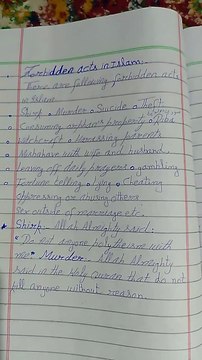 Forbidden acts in Islam:
There are following forbidden acts
in Islam
• Shirp • Murder • Suicide • Theft
• Consuming orphan's property • Riba
• witchcraft • Harassing parents
• Misbehave with wife and husband
• leaving off daily prayers • gambling
• Fortune telling • Lying • Cheating
oppressing or abusing others
Sex outside of marriage etc.
* Shirp - Allah Almighty said:
"Do not anyone polytheism with
me." Murder - Allah Almighty
said in the Holy Quran that do not
kill anyone without reason.